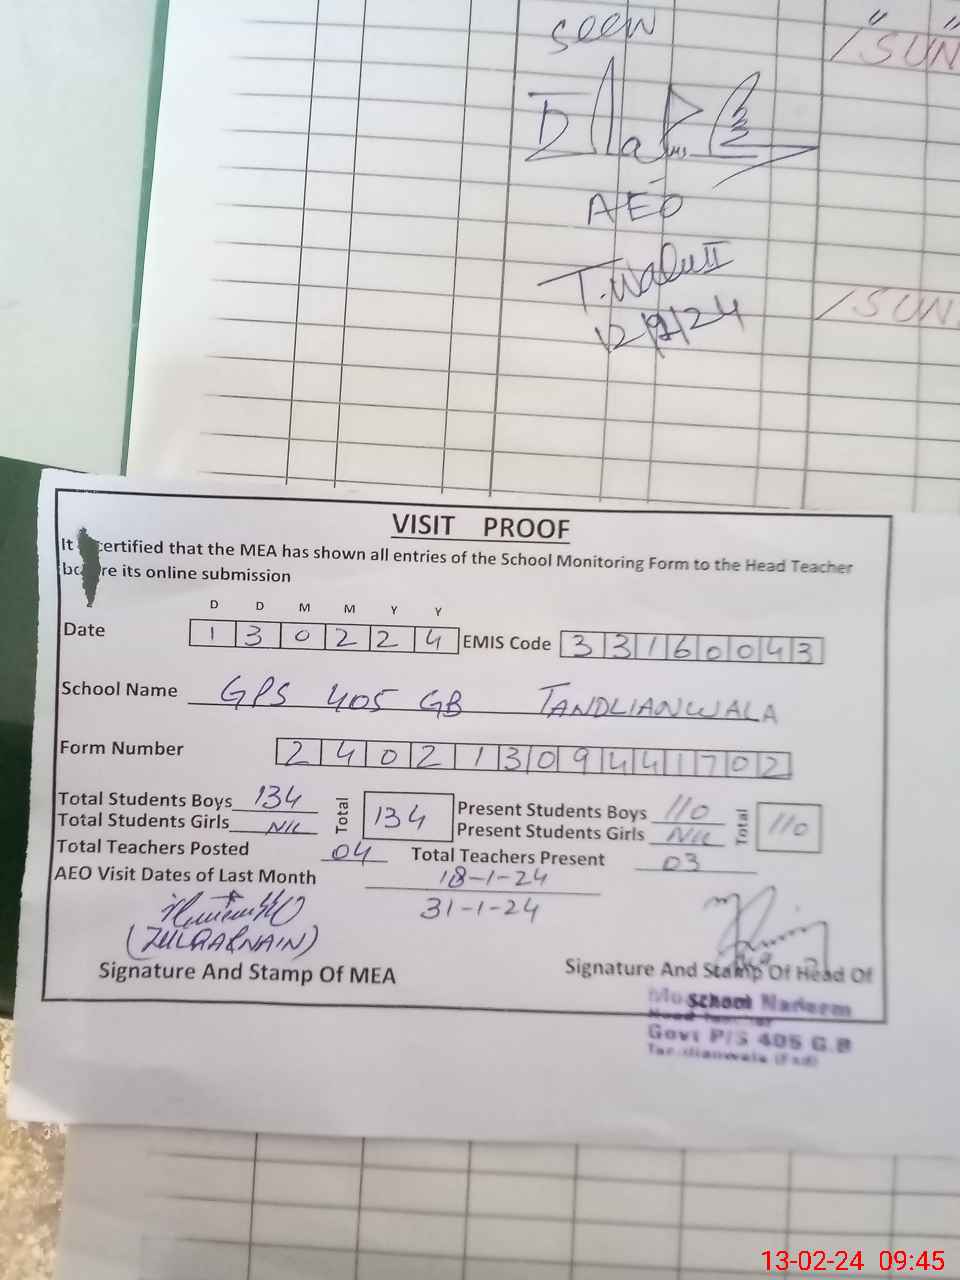 seen
" "
/ SUN
AEO
T.Wala II
12/2/24
/ SUN
VISIT PROOF
It certified that the MEA has shown all entries of the School Monitoring Form to the Head Teacher
before its online submission
D D M M Y Y
Date 1 3 0 2 2 4 EMIS Code 3 3 1 6 0 0 4 3
School Name GPS 405 GB TANDLIANWALA
Form Number 2 4 0 2 1 3 0 9 4 4 1 7 0 2
Total Students Boys 134 Total 134 Present Students Boys 110 Total 110
Total Students Girls NIL Present Students Girls NIL
Total Teachers Posted 04 Total Teachers Present 03
AEO Visit Dates of Last Month 18-1-24
31-1-24
(ZULQARNAIN)
Signature And Stamp Of MEA Signature And Stamp Of Head Of
School Nadeem
Govt P/S 405 G.B
Tandlianwala (Fsd)
13-02-24 09:45